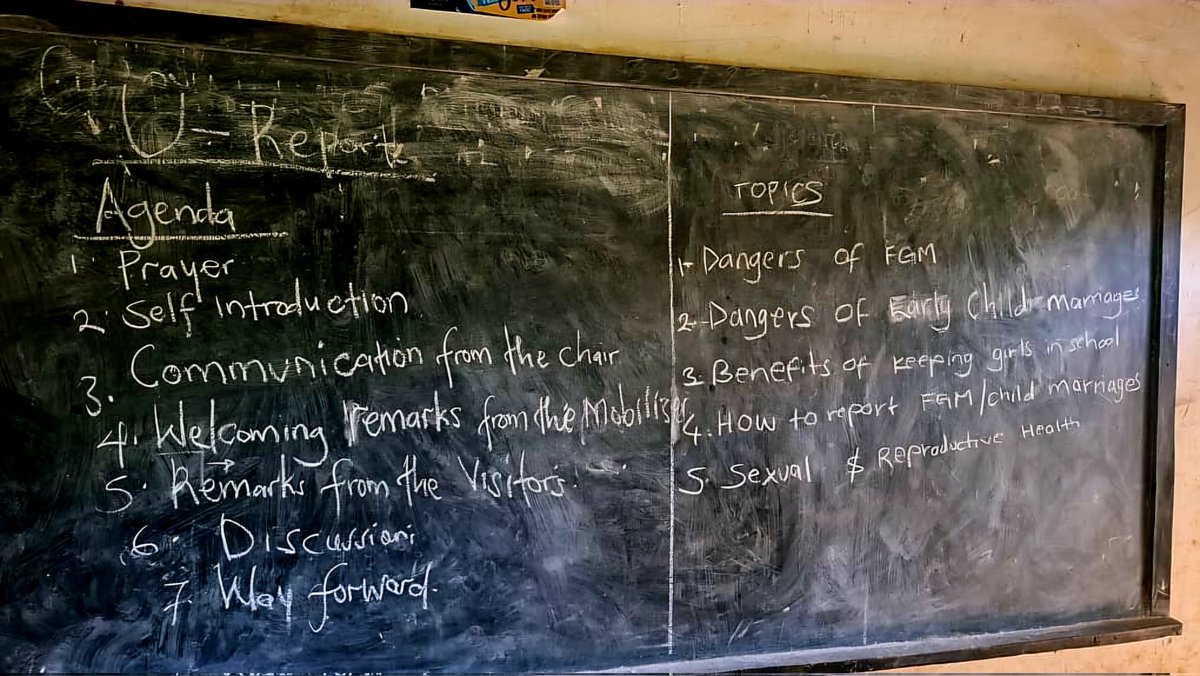 U-Report
Agenda
1. Prayer
2. Self Introduction
3. Communication from the chair
4. Welcoming remarks from the Mobilizer
5. Remarks from the Visitors.
6. Discussion;
7. Way forward.
TOPICS
1- Dangers of FGM
2- Dangers of Early Child marriages
3. Benefits of keeping girls in school
4. How to report FGM/child marriages
5. Sexual $ Reproductive Health